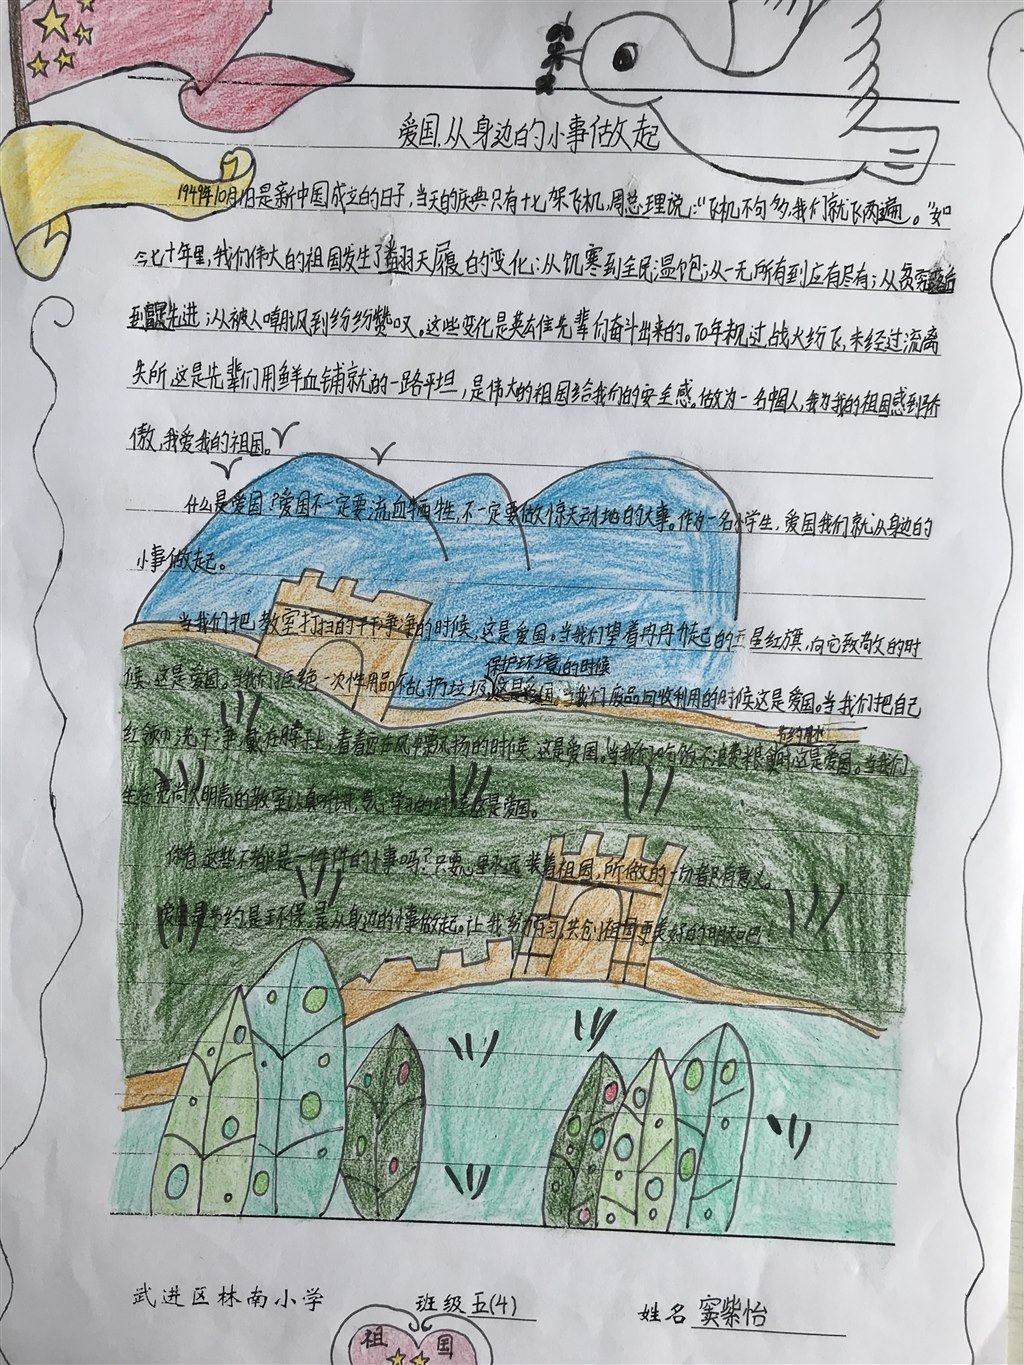 爱国,从身边的小事做起
1949年10月1日是新中国成立的日子,当天的庆典只有十七架飞机,周总理说:“飞机不句多,我们就飞两遍。”如
今七十年里,我们伟大的祖国发生了翻天覆的变化:从饥寒到全民温饱;从一无所有到应有尽有;从贫穷落后
到先进;从被人嘲讽到纷纷赞叹。这些变化是英雄先辈们奋斗出来的。70年未见过战火纷飞,未经过流离
失所,这是先辈们用鲜血铺就的一路平坦,是伟大的祖国给我们的安全感。做为一名中国人,我为我的祖国感到骄
傲,我爱我的祖国。
什么是爱国?爱国不一定要流血牺牲,不一定要做惊天动地的大事。作为一名小学生,爱国我们就从身边的
小事做起。
当我们把教室打扫的干干净净的时候,这是爱国。当我们望着冉冉升起的五星红旗,向它致敬的时
保护环境的时候
候,这是爱国。当我们拒绝一次性用品,乱扔垃圾,这是爱国。当我们废品回收利用的时候这是爱国。当我们把自己
节约粮食
红领巾洗干净,戴在脖子上,看着它在风中飘扬的时候,这是爱国。当我们吃饭不浪费粮食时,这是爱国。当我们
坐在宽尚明亮的教室认真听讲,学习的时候这是爱国。
你看,这些不都是一件件的小事吗?只要心里永远装着祖国,所做的一切都有意义。
节约是环保,是从身边的小事做起。让我努力学习,共创祖国更美好的明天吧!
武进区林南小学 班级 五(4) 姓名 窦紫怡
祖国